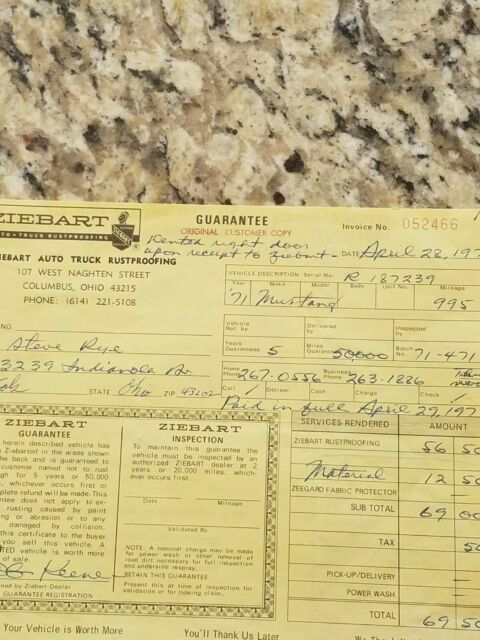 ZIEBART
AUTO • TRUCK RUSTPROOFING
GUARANTEE
ORIGINAL CUSTOMER COPY
Invoice No. 052466
Dented right door
upon receipt to Ziebart -
DATE April 28, 197
ZIEBART AUTO TRUCK RUSTPROOFING
107 WEST NAGHTEN STREET
COLUMBUS, OHIO 43215
PHONE: (614) 221-5108
VEHICLE DESCRIPTION Serial No. R 187239
Year Make Model Body Unit No. Mileage
'71 Mustang 995
Vehicle Rec. by
Delivered by
Inspected by
NO.
Years Guaranteed 5
Miles Guaranteed 50000
Batch No. 71-471
Steve Rye
3239 Indianola Av
Home Phone 267-0556
Business Phone 263-1886
STATE Ohio ZIP 43202
Call Deliver Cash Charge Check
Paid in full April 29, 197
SERVICES RENDERED AMOUNT
ZIEBART RUSTPROOFING 56 50
Material 12 50
ZEEGARD FABRIC PROTECTOR
SUB TOTAL 69 00
TAX 50
PICK-UP/DELIVERY
POWER WASH
TOTAL 69 50
ZIEBART
GUARANTEE
herein described vehicle has
n Ziebarted in the areas shown
the back and is guaranteed to
customer named not to rust
ugh for 5 years or 50,000
s, whichever occurs first or
plete refund will be made. This
antee does not apply to ex-
rusting caused by paint
ng or abrasion or to any
damaged by collision.
n this certificate to the buyer
you sell this vehicle. A
TED vehicle is worth more
of sale.
Keene
ned by Ziebart Dealer
GUARANTEE REGISTRATION
ZIEBART
INSPECTION
To maintain this guarantee
the vehicle must be inspected by an
authorized ZIEBART dealer at 2
years or 20,000 miles, which-
ever occurs first.
Date Mileage
Validated By
NOTE: A nominal charge may be made
for power wash or other removal of
road dirt necessary for full inspection
and underside respray.
RETAIN THIS GUARANTEE
Present this at time of inspection for
validation or for making claim.
Your Vehicle is Worth More
You'll Thank Us Later